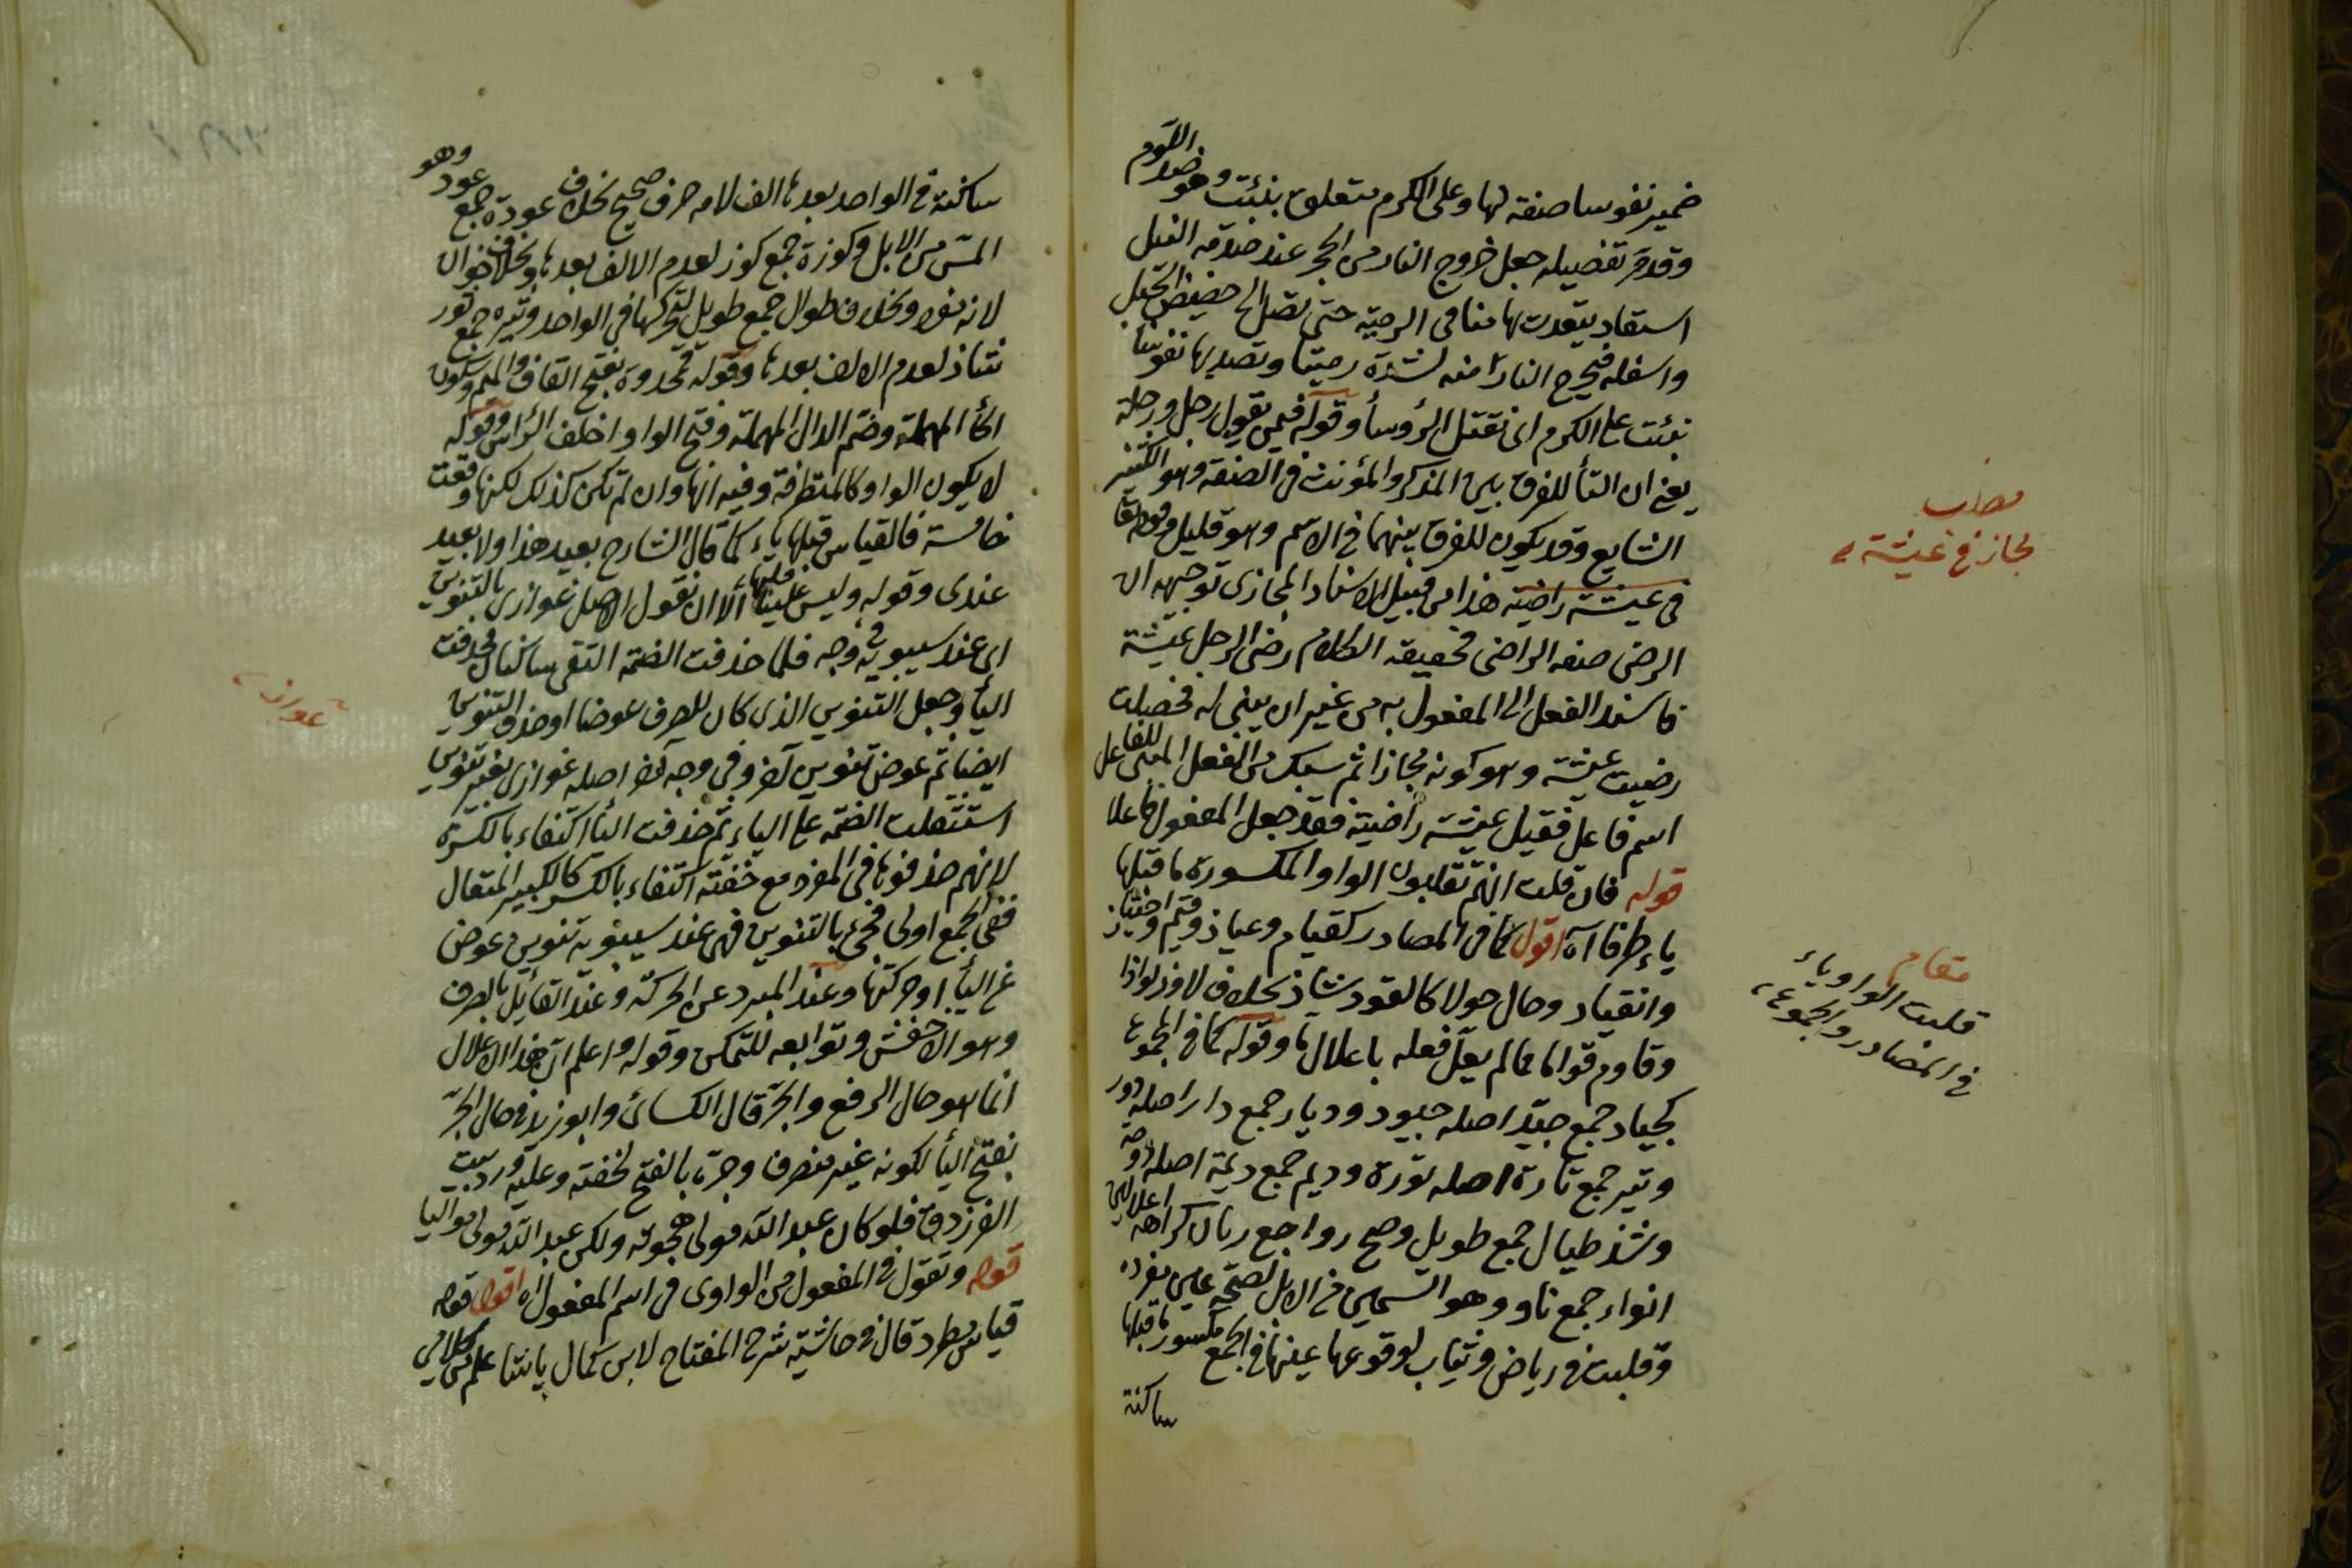 ضمير نفوسا صفة لها وعلى الكرم متعلق بنبئت وهو ضد اللوم
وقد مر تفصيله جعل خروج النار من الحجر عند صدمة النبل
استقاد يتعدت بها منا في الرمية حتى تصل الى حضيض الجبل
واسفله فيخرج النار منه لشدة رميتنا وتصديها نفوسا
نبئت على الكرم اى نقتل الرؤسأ وقوله فيمن يقول رجل ورجلة
يعنى ان التأ للفرق بين المذكر والمؤنث فى الصفة وهو الكثير
الشايع وقد يكون للفرق بينهما فى الاسم وهو قليل وقوله تعا
فى عيشة راضية هذا من قبيل الاسناد المجازى توجيهه ان
الرضى صفة الراضى فحقيقة الكلام رضى الرجل عيشة
فاسند الفعل الى المفعول به من غير ان يبنى له فحصلت
رضيت عيشة وهو كونه مجازا ثم سبك من الفعل المبنى للفاعل
اسم فاعل فقيل عيشة راضية فقد جعل المفعول فاعلا
قوله فان قلت انهم تقلبون الواو المكسورة ما قبلها
ياء طرفا آه اقول كما فى المصادر كقيام وعياذ وقيم واختياز
وانقياد وحال حولا كالقود شاذ بخلاف لاوذ لواذا
وقاوم قواما مما لم يعل فعله باعلال ما وقوله كما فى الجموع
كجياد جمع جيد اصله جيود وديار جمع دار اصله دور
وتير جمع تارة اصله تورة وديم جمع ديمة اصله دومة
وشذ طيال جمع طويل وصح رواء جمع ريان كراهة اعلالين
انواء جمع ناوو وهو السمين من الابل لصحة عين مفرده
وقلبت فى رياض وثياب لوقوعها عينا فى الجمع مكسور ما قبلها
ساكنة
مطلب
مجاز فى عيشة
مقام
قلبت الواو ياء
فى المصادر والجموع
ساكنة فى الواحد بعدها الف لامه حرف صحيح بخلاف عودة جمع عود وهو
المسن من الابل وكوزة جمع كوز لعدم الالف بعدها وبخلاف خوان
لانه مفرد وبخلاف طوال جمع طويل لتحركها فى الواحد وثيره جمع ثور
شاذ لعدم الالف بعدها وقوله قمحدوة بفتح القاف والميم وسكون
الحأ المهملة وضم الدال المهملة وفتح الواو اخلف الرأس وقوله
لا يكون الواو كالمتطرفة وفيه انها وان لم تكن كذلك لكنها وقعت
خامسة فالقياس قبلها ياء كما قال الشارح بعيد هذا ولا بعيد
عندى وقوله وليس علينا الا ان نقول الاصل غوازى بالتنوين
اى عند سيبويه فى وجه فلما حذفت الضمة التقى ساكنان فحذفت
اليأ وجعل التنوين الذى كان للصرف عوضا او حذف التنوين
ايضا ثم عوض تنوين آخر وفى وجه آخر اصله غوازى بغير تنوين
استثقلت الضمة على الياء ثم حذفت اليأ اكتفاء بالكسرة
لانهم حذفوها فى المفرد مع خفته اكتفاء بالكسر كالكبير المتعال
ففى الجمع اولى فجئ بالتنوين فهى عند سيبويه تنوين عوض
عن اليأ او حركتها وعند المبرد عن الحركة وعند القائل بالصرف
وهو الاخفش وتوابعه للتمكن وقوله واعلم ان هذا الاعلال
انما هو حال الرفع والجر قال الكسائى وابو زيد فى حال الجر
بفتح اليأ لكونه غير منصرف وجره بالفتح لخفته وعليه ورد بيت
الفرزدق فلو كان عبد الله مولى هجوته ولكن عبد الله مولى مواليا
قوله وتقول فى المفعول من الواوى فى اسم المفعول اه اقول قوله
قياس مطرد قال فى حاشية شرح المفتاح لابن كمال پاشا علم من كلامى